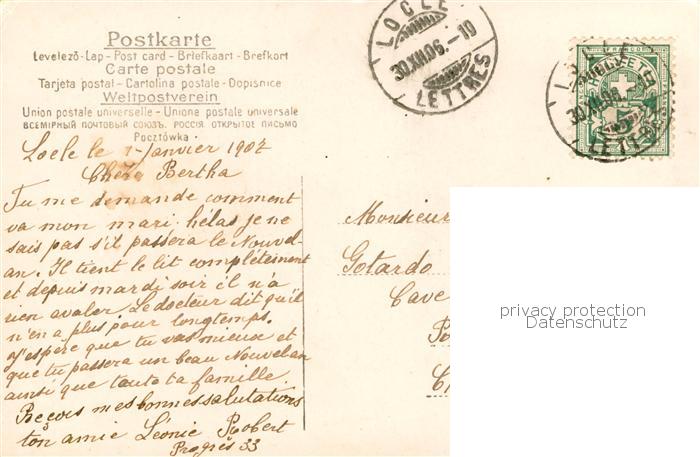 Postkarte
Levelező-Lap - Post card - Briefkaart - Brefkort
Carte postale
Tarjeta postal - Cartolina postale - Dopisnice
Weltpostverein
Union postale universelle - Unione postale universale
ВСЕМІРНЫЙ ПОЧТОВЫЙ СОЮЗЪ. РОССІЯ ОТКРЫТОЕ ПИСЬМО
Pocztówka
LOCLE
30.XII.06.-10
LETTRES
HELVETIA
FRANCO
30.XII.06
LETTRES
Locle le 1 Janvier 1907
Chère Bertha
Tu me demande comment
va mon mari. hélas je ne
sais pas s'il passera le Nouvel-
an. Il tient le lit complètement
et depuis mardi soir il n'a
rien avaler. Le docteur dit qu'il
n'en a plus pour longtemps.
J'espère que tu vas mieux et
que tu passera un beau Nouvelan
ainsi que toute ta famille
Reçois mes bonnes salutations
ton amie Léonie Robert
Progrès 33
Monsieur
Gotardo
Cave
privacy protection
Datenschutz